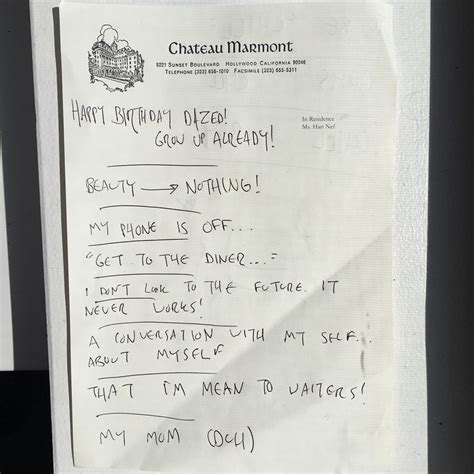 Chateau Marmont
8221 SUNSET BOULEVARD HOLLYWOOD CALIFORNIA 90046
TELEPHONE (323) 656-1010 FACSIMILE (323) 655-5311
In Residence
Ms. Hari Nef
HAPPY BIRTHDAY DAZED!
GROW UP ALREADY!
BEAUTY → NOTHING!
MY PHONE IS OFF...
"GET TO THE DINER..."
I DON'T LOOK TO THE FUTURE. IT
NEVER WORKS!
A CONVERSATION WITH MY SELF...
ABOUT MYSELF
THAT I'M MEAN TO WAITERS!
MY MOM (DUH)